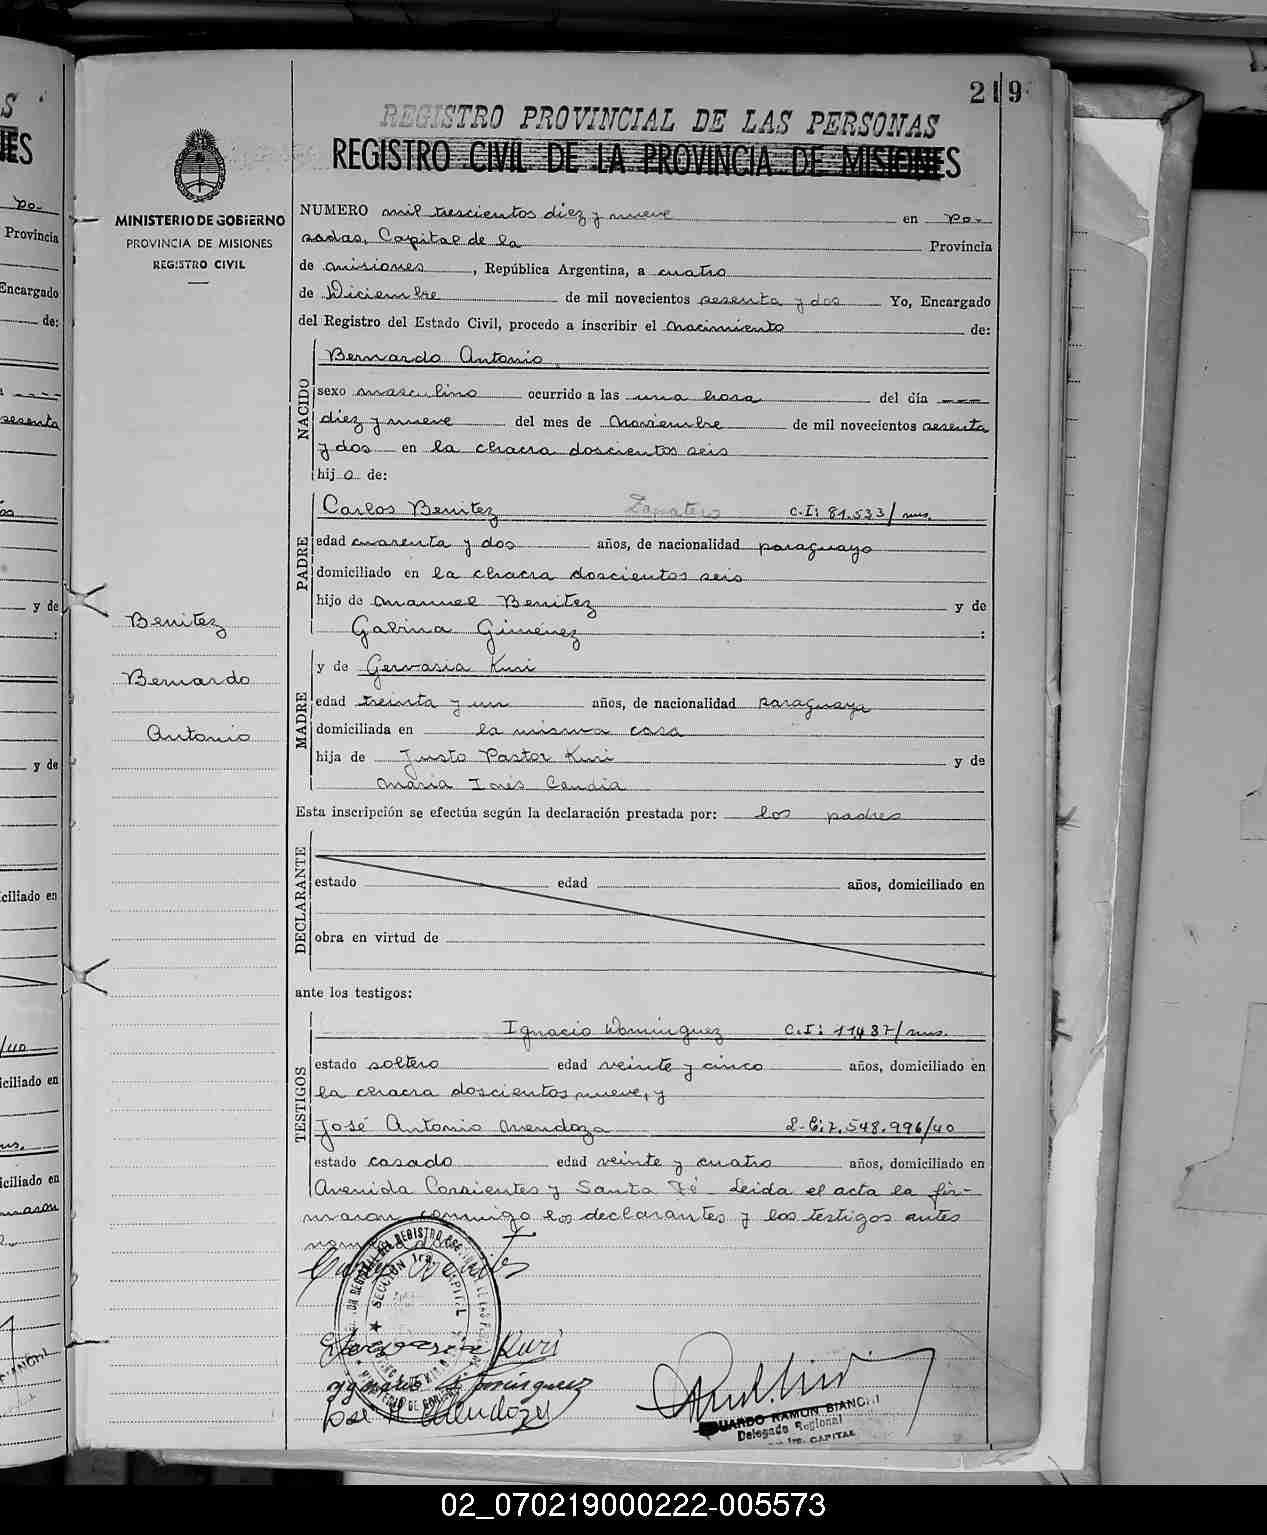 219
REGISTRO PROVINCIAL DE LAS PERSONAS
REGISTRO CIVIL DE LA PROVINCIA DE MISIONES
MINISTERIO DE GOBIERNO
PROVINCIA DE MISIONES
REGISTRO CIVIL
NUMERO mil trescientos diez y nueve en Po-
sadas, Capital de la Provincia
de misiones, República Argentina, a cuatro
de Diciembre de mil novecientos sesenta y dos Yo, Encargado
del Registro del Estado Civil, procedo a inscribir el nacimiento de:
NACIDO
Bernardo Antonio
sexo masculino ocurrido a las una hora del día ---
diez y nueve del mes de noviembre de mil novecientos sesenta
y dos en la chacra doscientos seis
hijo de:
PADRE
Carlos Benitez Zapatero C.I: 81.533/mns.
edad cuarenta y dos años, de nacionalidad paraguayo
domiciliado en la chacra doscientos seis
hijo de Manuel Benitez y de
Gabina Giménez :
Benitez
Bernardo
Antonio
MADRE
y de Gervasia Kuri
edad treinta y un años, de nacionalidad paraguaya
domiciliada en la misma casa
hija de Justo Pastor Kuri y de
Maria Inés Candia
Esta inscripción se efectúa según la declaración prestada por: los padres
DECLARANTE
estado edad años, domiciliado en
obra en virtud de
ante los testigos:
TESTIGOS
Ignacio Domínguez C.I: 11.437/mns.
estado soltero edad veinte y cinco años, domiciliado en
la chacra doscientos nueve, y
José Antonio Mendoza L-E: 7.548.996/40
estado casado edad veinte y cuatro años, domiciliado en
Avenida Corrientes y Santa Fé - Leida el acta la fir-
maron conmigo los declarantes y los testigos antes
SECCION 1ra. CAPITAL
Gervasia Kuri
Ygnacio Domínguez
José A Mendoza
EDUARDO RAMON BIANCHI
Delegado Regional
1ra. CAPITAL
02_070219000222-005573